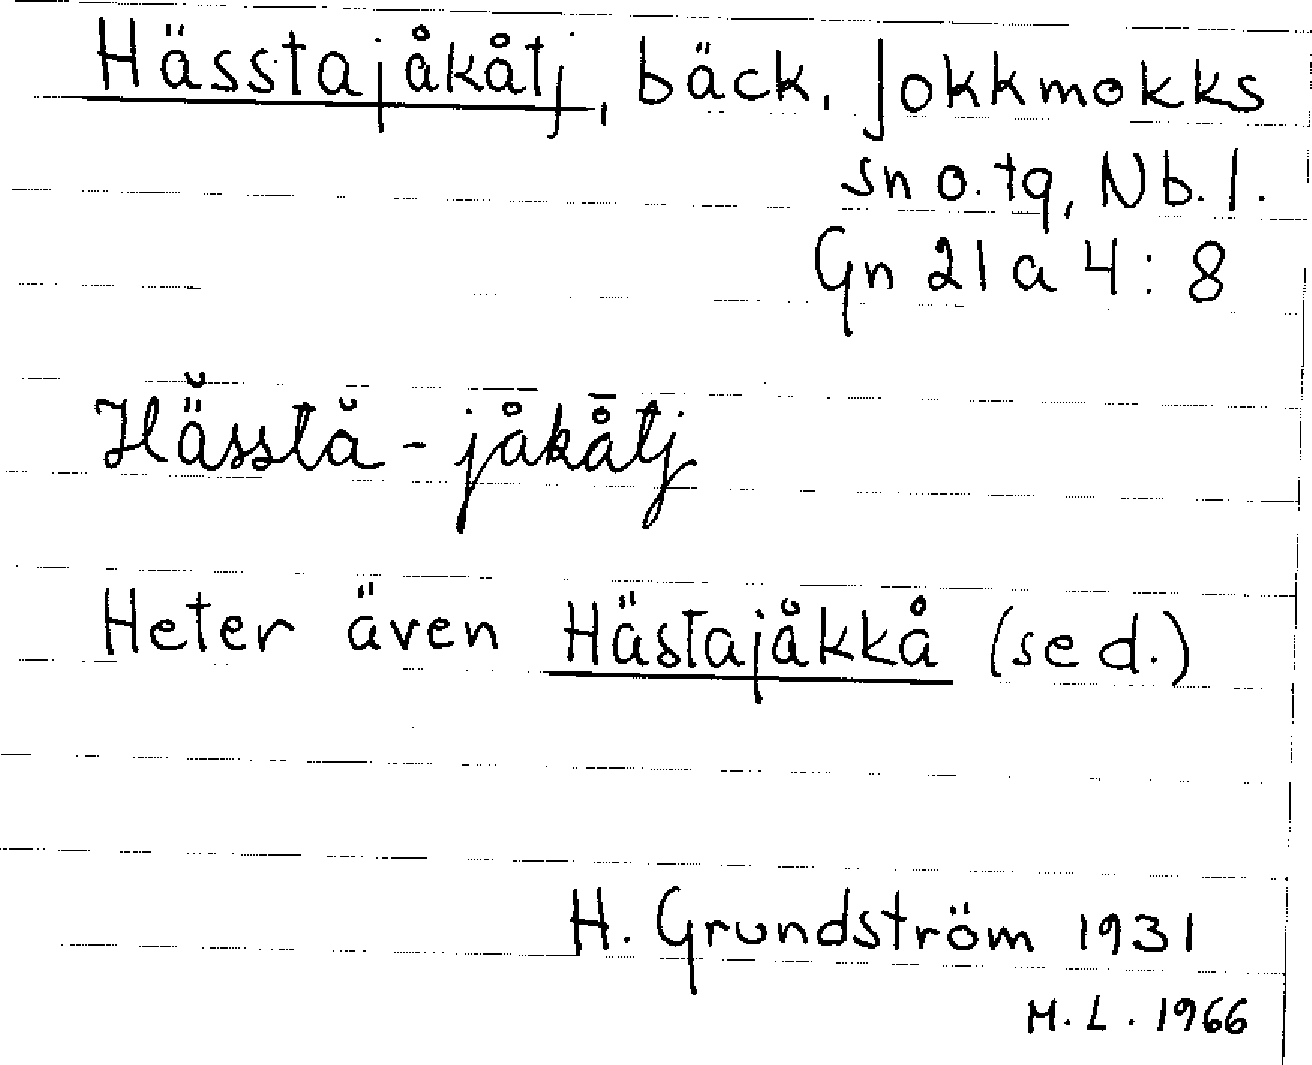 Hässtajåkåtj, bäck. Jokkmokks
sn o. tg, Nb. l.
Gn 21 a 4:8
Hä̆sstă-jåkå̄tj
Heter även Hästajåkkå (se d.)
H. Grundström 1931
M. L. 1966